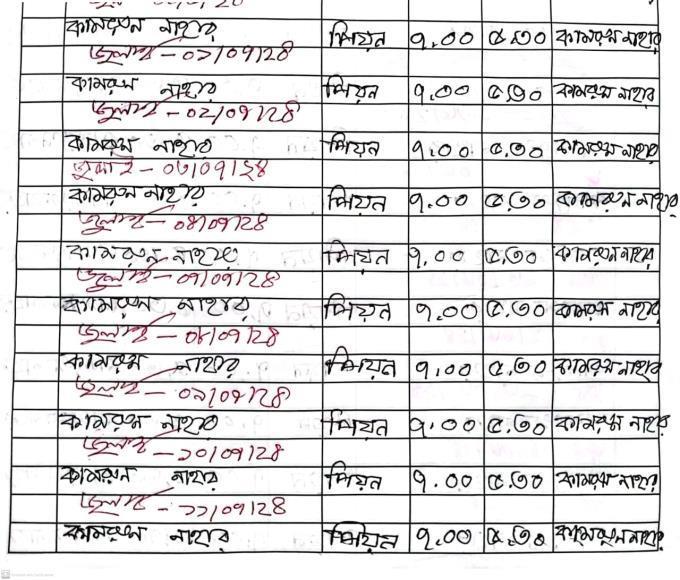 কামরুন নাহার পিয়ন ৭.০০ ৫.৩০ কামরুন নাহার
জুলাই - ০১/০৭/২৪
কামরুন নাহার পিয়ন ৭.০০ ৫.৩০ কামরুন নাহার
জুলাই - ০২/০৭/২৪
কামরুন নাহার পিয়ন ৭.০০ ৫.৩০ কামরুন নাহার
জুলাই - ০৩/০৭/২৪
কামরুন নাহার পিয়ন ৭.০০ ৫.৩০ কামরুন নাহার
জুলাই - ০৪/০৭/২৪
কামরুন নাহার পিয়ন ৭.০০ ৫.৩০ কামরুন নাহার
জুলাই - ০৭/০৭/২৪
কামরুন নাহার পিয়ন ৭.০০ ৫.৩০ কামরুন নাহার
জুলাই - ০৮/০৭/২৪
কামরুন নাহার পিয়ন ৭.০০ ৫.৩০ কামরুন নাহার
জুলাই - ০৯/০৭/২৪
কামরুন নাহার পিয়ন ৭.০০ ৫.৩০ কামরুন নাহার
জুলাই - ১০/০৭/২৪
কামরুন নাহার পিয়ন ৭.০০ ৫.৩০ কামরুন নাহার
জুলাই - ১১/০৭/২৪
কামরুন নাহার পিয়ন ৭.০০ ৫.৩০ কামরুন নাহার